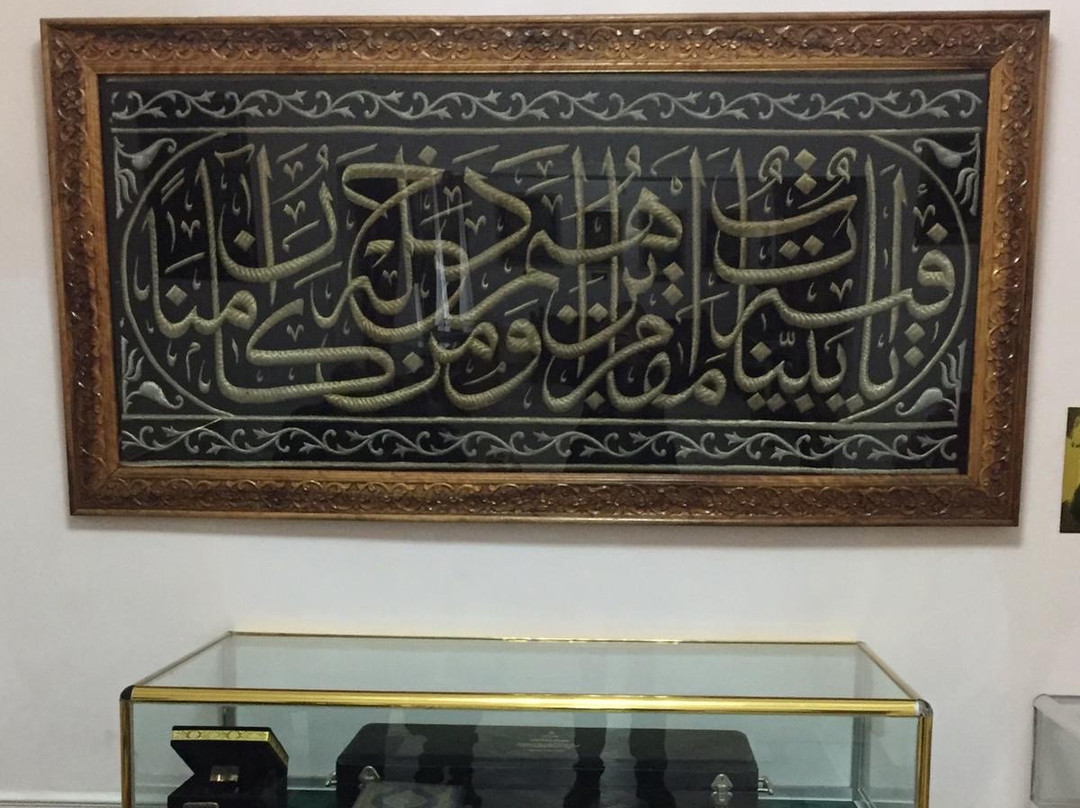 فِيهِ آيَاتٌ بَيِّنَاتٌ مَقَامُ إِبْرَاهِيمَ وَمَنْ دَخَلَهُ كَانَ آمِنًا